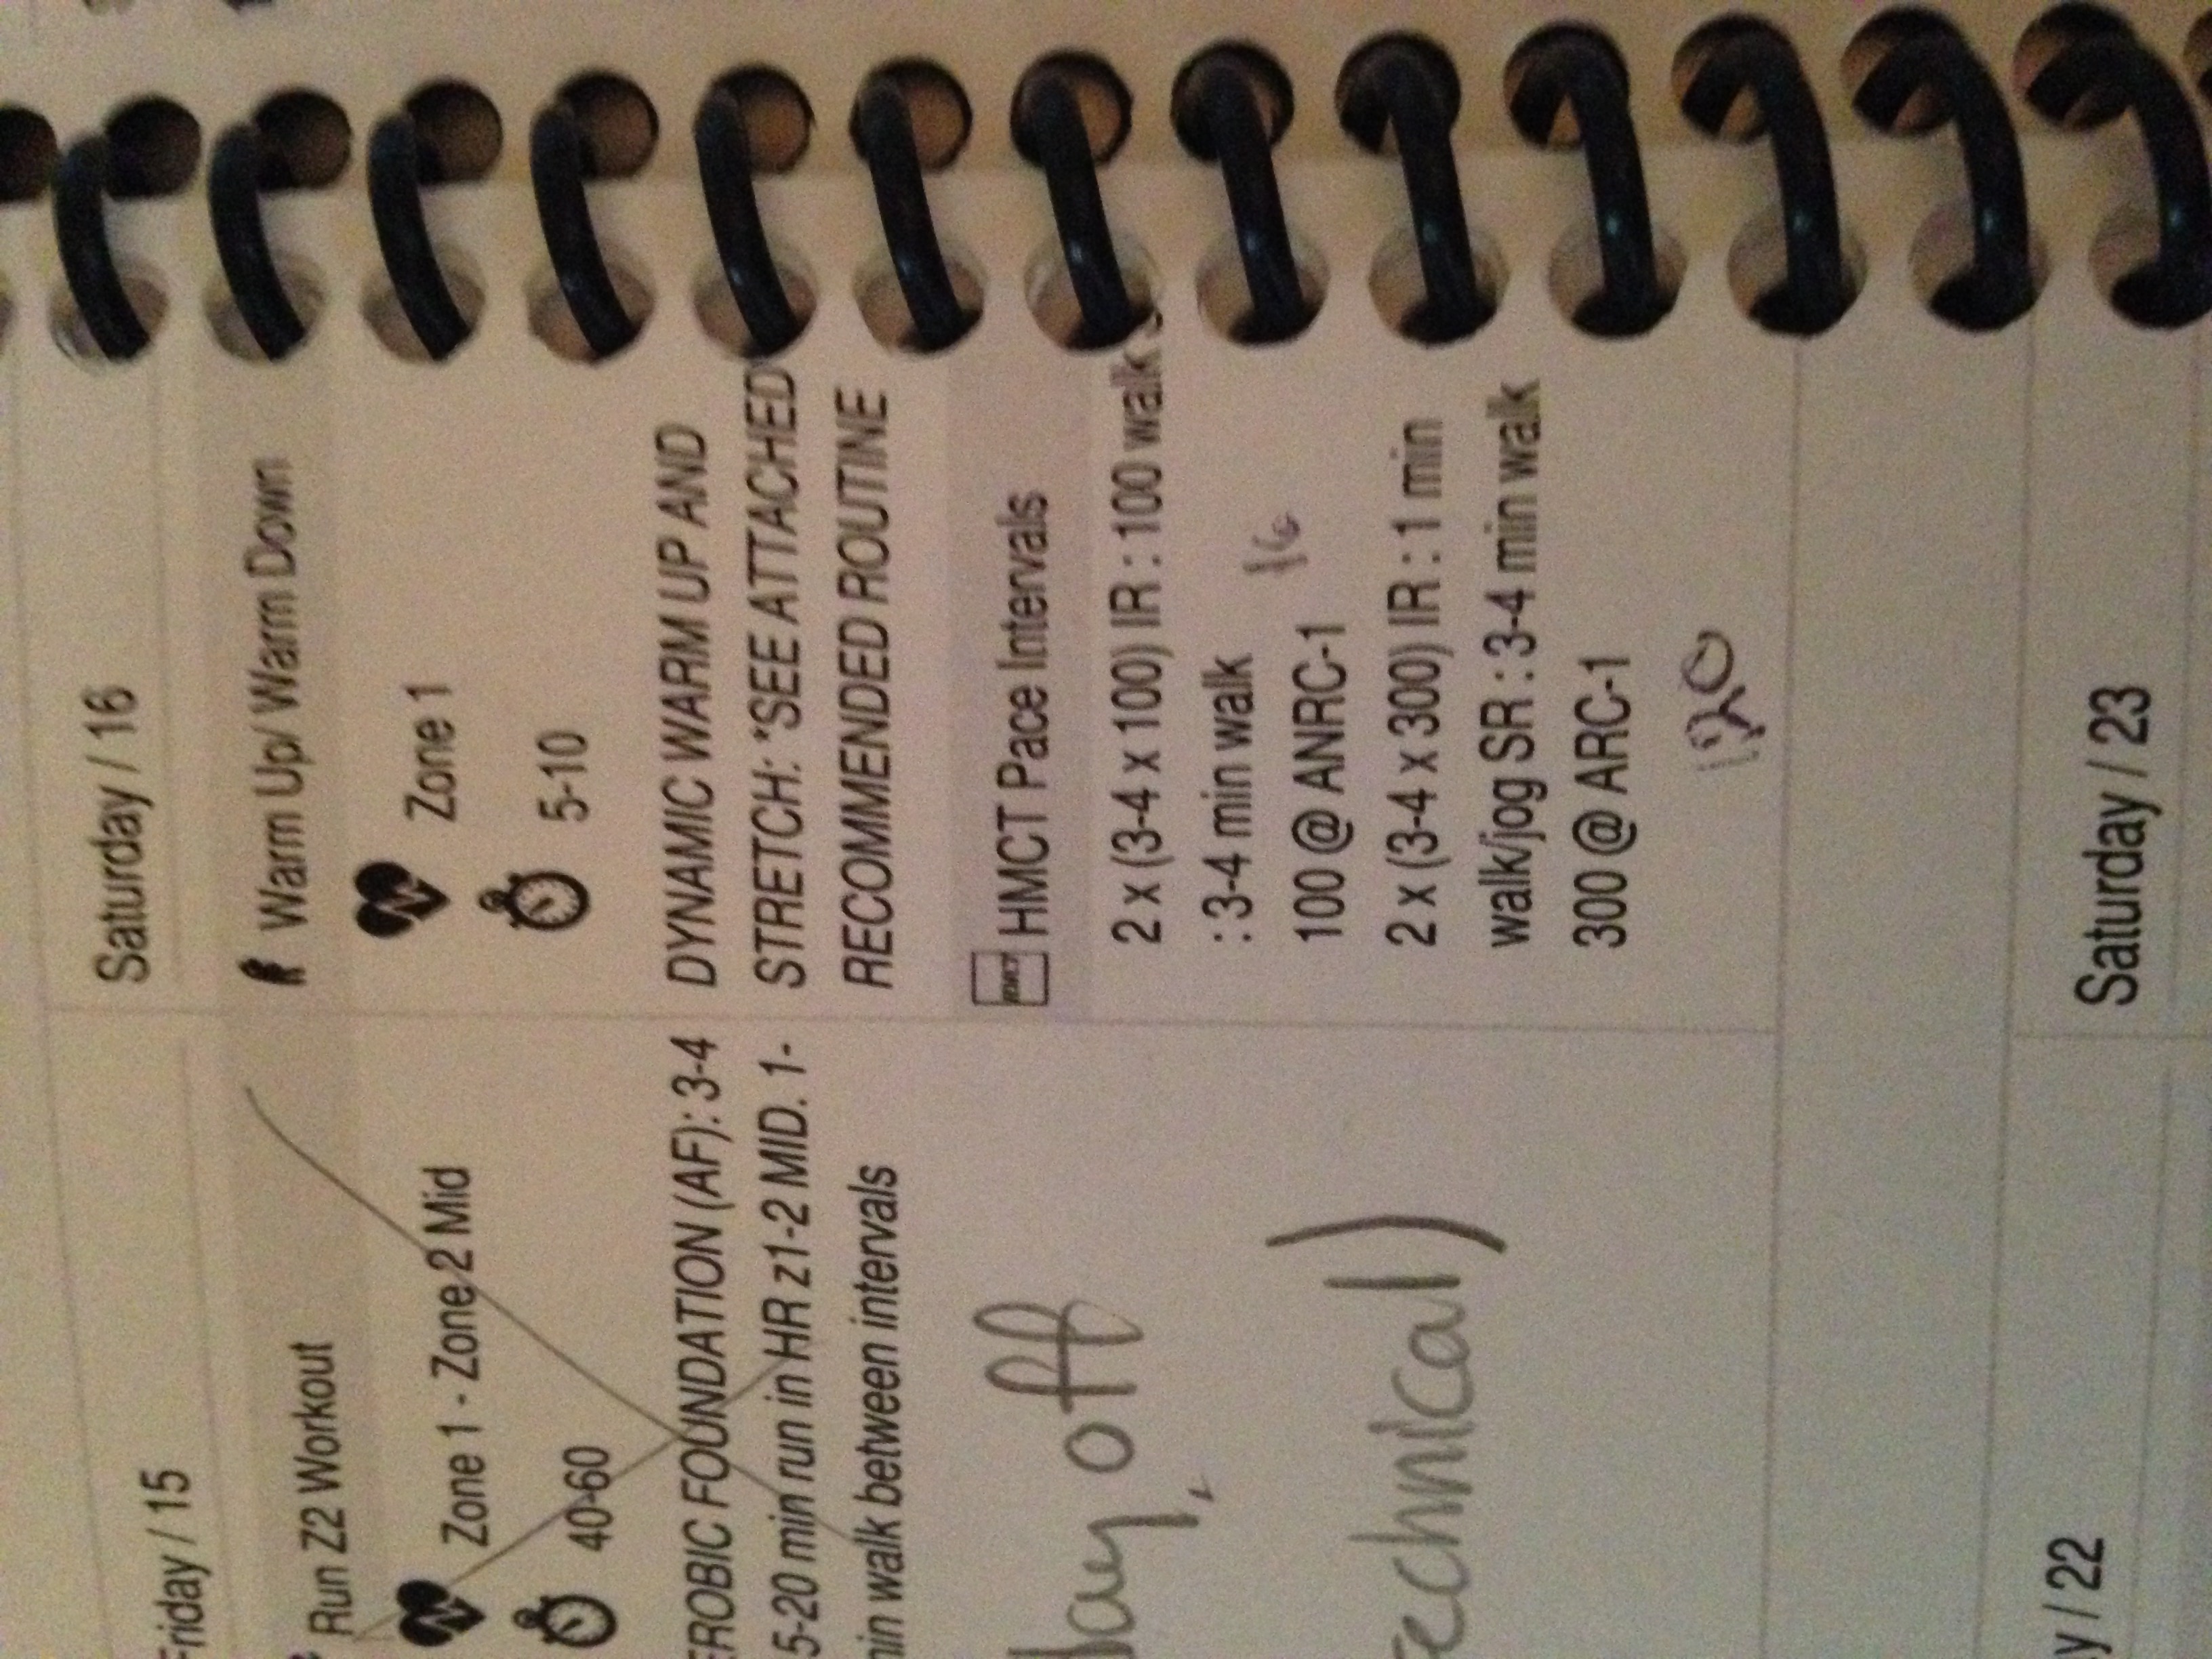 Friday / 15
Run Z2 Workout
Zone 1 - Zone 2 Mid
40-60
EROBIC FOUNDATION (AF): 3-4
5-20 min run in HR z1-2 MID. 1-
min walk between intervals
day off
technical)
Saturday / 16
Warm Up/ Warm Down
Zone 1
5-10
DYNAMIC WARM UP AND
STRETCH: *SEE ATTACHED
RECOMMENDED ROUTINE
HMCT Pace Intervals
2 x (3-4 x 100) IR : 100 walk
: 3-4 min walk
16
100 @ ANRC-1
2 x (3-4 x 300) IR : 1 min
walk/jog SR : 3-4 min walk
300 @ ARC-1
120
y / 22
Saturday / 23